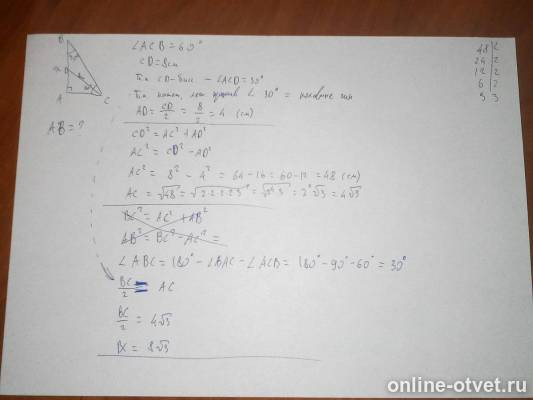 B
D
A
C
AB = ?
∠ACB = 60°
CD = 8см
Т.к. CD - бис. - ∠ACD = 30°
AD = CD/2 = 8/2 = 4 (см)
CD² = AC² + AD²
AC² = CD² - AD²
AC² = 8² - 4² = 64 - 16 = 60 - 12 = 48 (см)
AC = √48 = √2·2·2·2·3 = √2⁴·3 = 2²√3 = 4√3
BC² = AC² + AB²
AB² = BC² - AC² =
∠ABC = 180° - ∠BAC - ∠ACB = 180° - 90° - 60° = 30°
BC/2 = AC
BC/2 = 4√3
BC = 8√3
48 2
24 2
12 2
6 2
3 3
online-otvet.ru